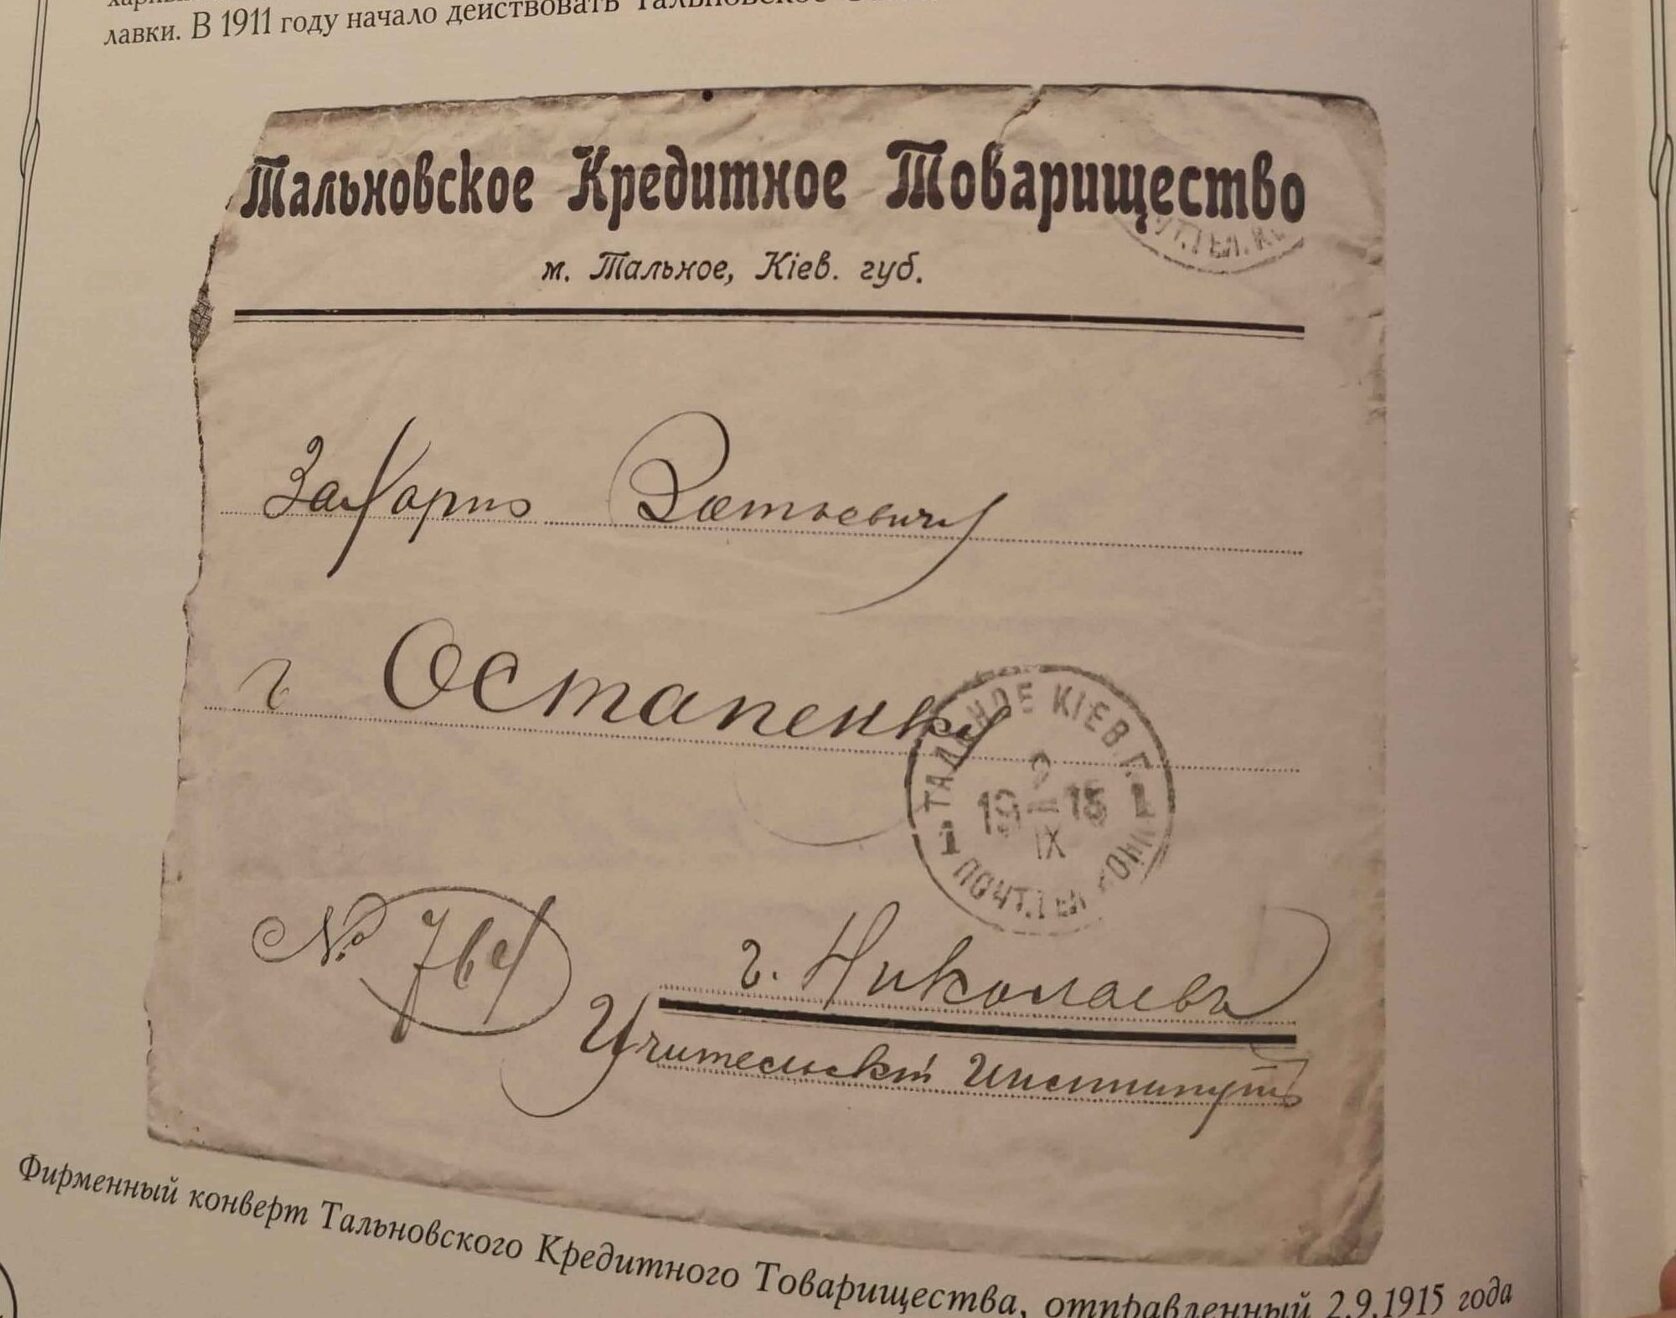 лавки. В 1911 году начало действовать Тальновское
Тальновское Кредитное Товарищество
м. Тальное, Кіев. губ.
Захарію
г Остапенку
ТАЛЬНОЕ КІЕВ Г.
2
19—15
IX
1 1
ПОЧТ.ТЕЛ. КОНТ
№ 764
г. Николаевъ
Учительскій Институтъ
Фирменный конверт Тальновского Кредитного Товарищества, отправленный 2.9.1915 года